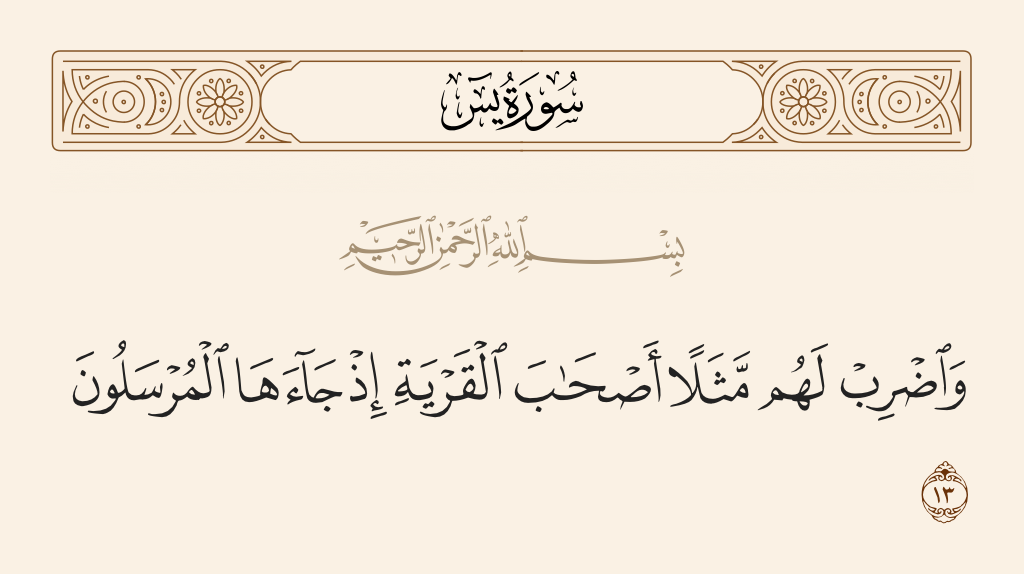 سُورَةُ يسٓ
بِسْمِ ٱللَّهِ ٱلرَّحْمَٰنِ ٱلرَّحِيمِ
وَٱضْرِبْ لَهُم مَّثَلًا أَصْحَـٰبَ ٱلْقَرْيَةِ إِذْ جَآءَهَا ٱلْمُرْسَلُونَ
١٣